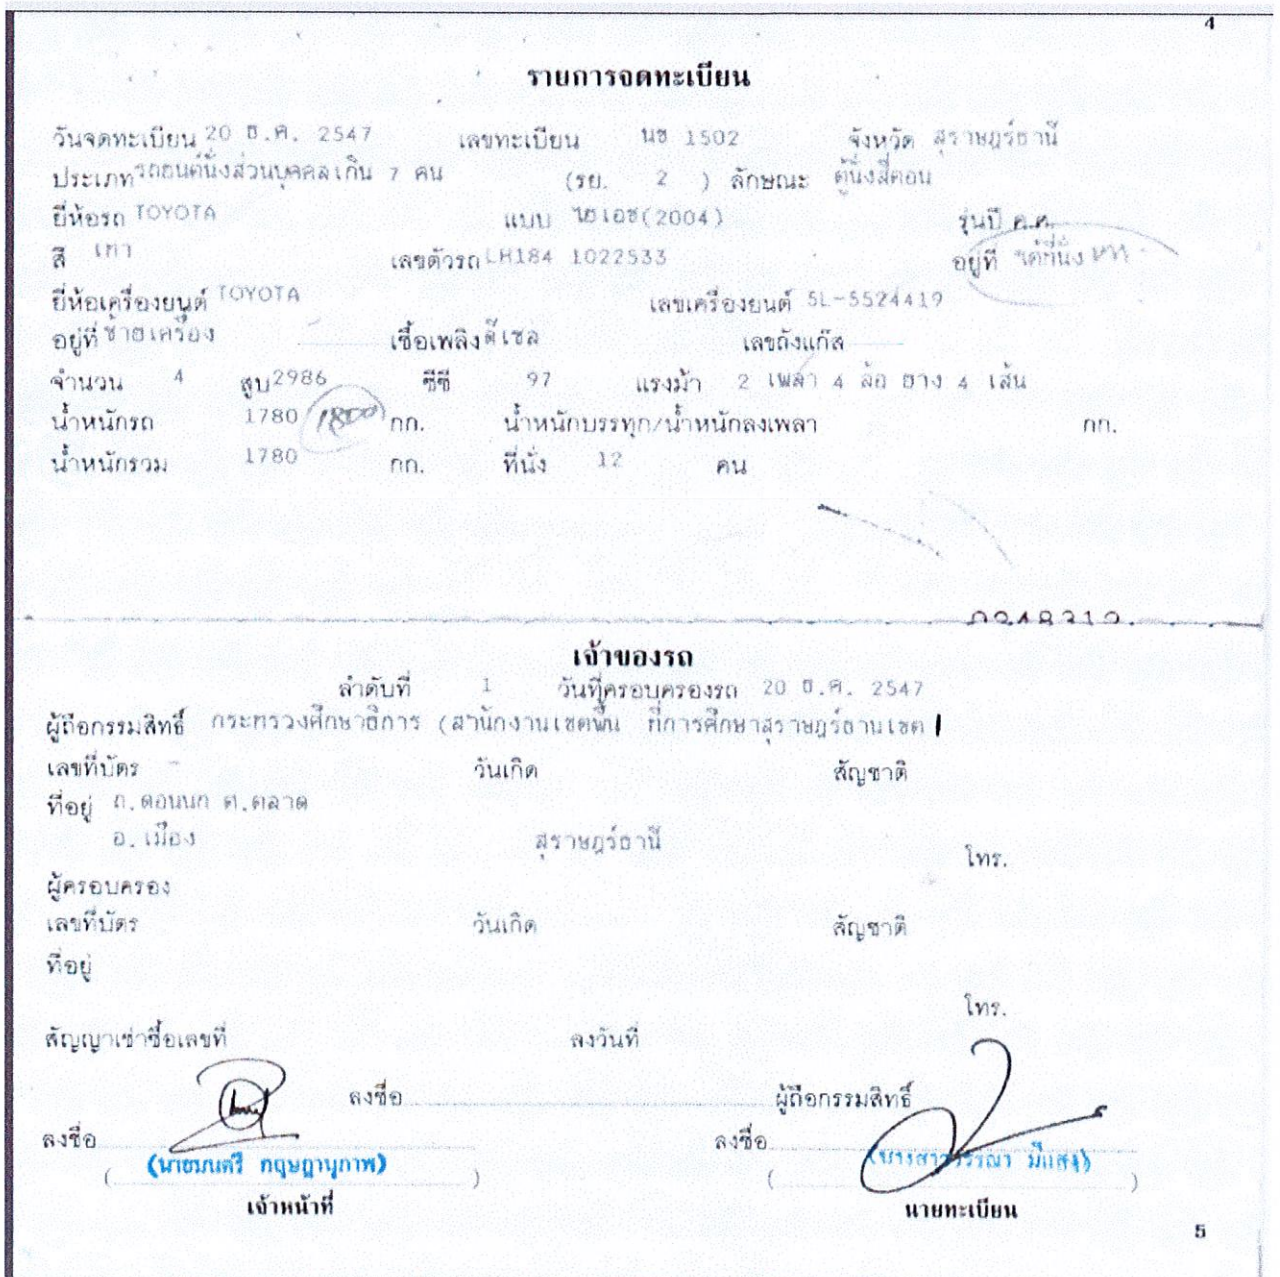 4
รายการจดทะเบียน
วันจดทะเบียน 20 ธ.ค. 2547 เลขทะเบียน นข 1502 จังหวัด สุราษฎร์ธานี
ประเภท รถยนต์นั่งส่วนบุคคลเกิน 7 คน (รย. 2 ) ลักษณะ ตู้นั่งสี่ตอน
ยี่ห้อรถ TOYOTA แบบ ไฮเอช(2004) รุ่นปี ค.ศ.
สี เทา เลขตัวรถ LH184 1022533 อยู่ที่ ใต้ที่นั่ง
ยี่ห้อเครื่องยนต์ TOYOTA เลขเครื่องยนต์ 5L-5524419
อยู่ที่ ซ้ายเครื่อง เชื้อเพลิง ดีเซล เลขถังแก๊ส
จำนวน 4 สูบ 2986 ซีซี 97 แรงม้า 2 เพลา 4 ล้อ ยาง 4 เส้น
น้ำหนักรถ 1780 1800 กก. น้ำหนักบรรทุก/น้ำหนักลงเพลา กก.
น้ำหนักรวม 1780 กก. ที่นั่ง 12 คน
เจ้าของรถ
ลำดับที่ 1 วันที่ครอบครองรถ 20 ธ.ค. 2547
ผู้ถือกรรมสิทธิ์ กระทรวงศึกษาธิการ (สำนักงานเขตพื้น ที่การศึกษาสุราษฎร์ธานเขต 1
เลขที่บัตร - วันเกิด สัญชาติ
ที่อยู่ ถ.ดอนนก ต.ตลาด
อ.เมือง สุราษฎร์ธานี โทร.
ผู้ครอบครอง
เลขที่บัตร วันเกิด สัญชาติ
ที่อยู่
โทร.
สัญญาเช่าซื้อเลขที่ ลงวันที่
ลงชื่อ ผู้ถือกรรมสิทธิ์
ลงชื่อ ลงชื่อ
(นายมนตรี กฤษฎานุภาพ) มีแสง)
( ) ( )
เจ้าหน้าที่ นายทะเบียน
5